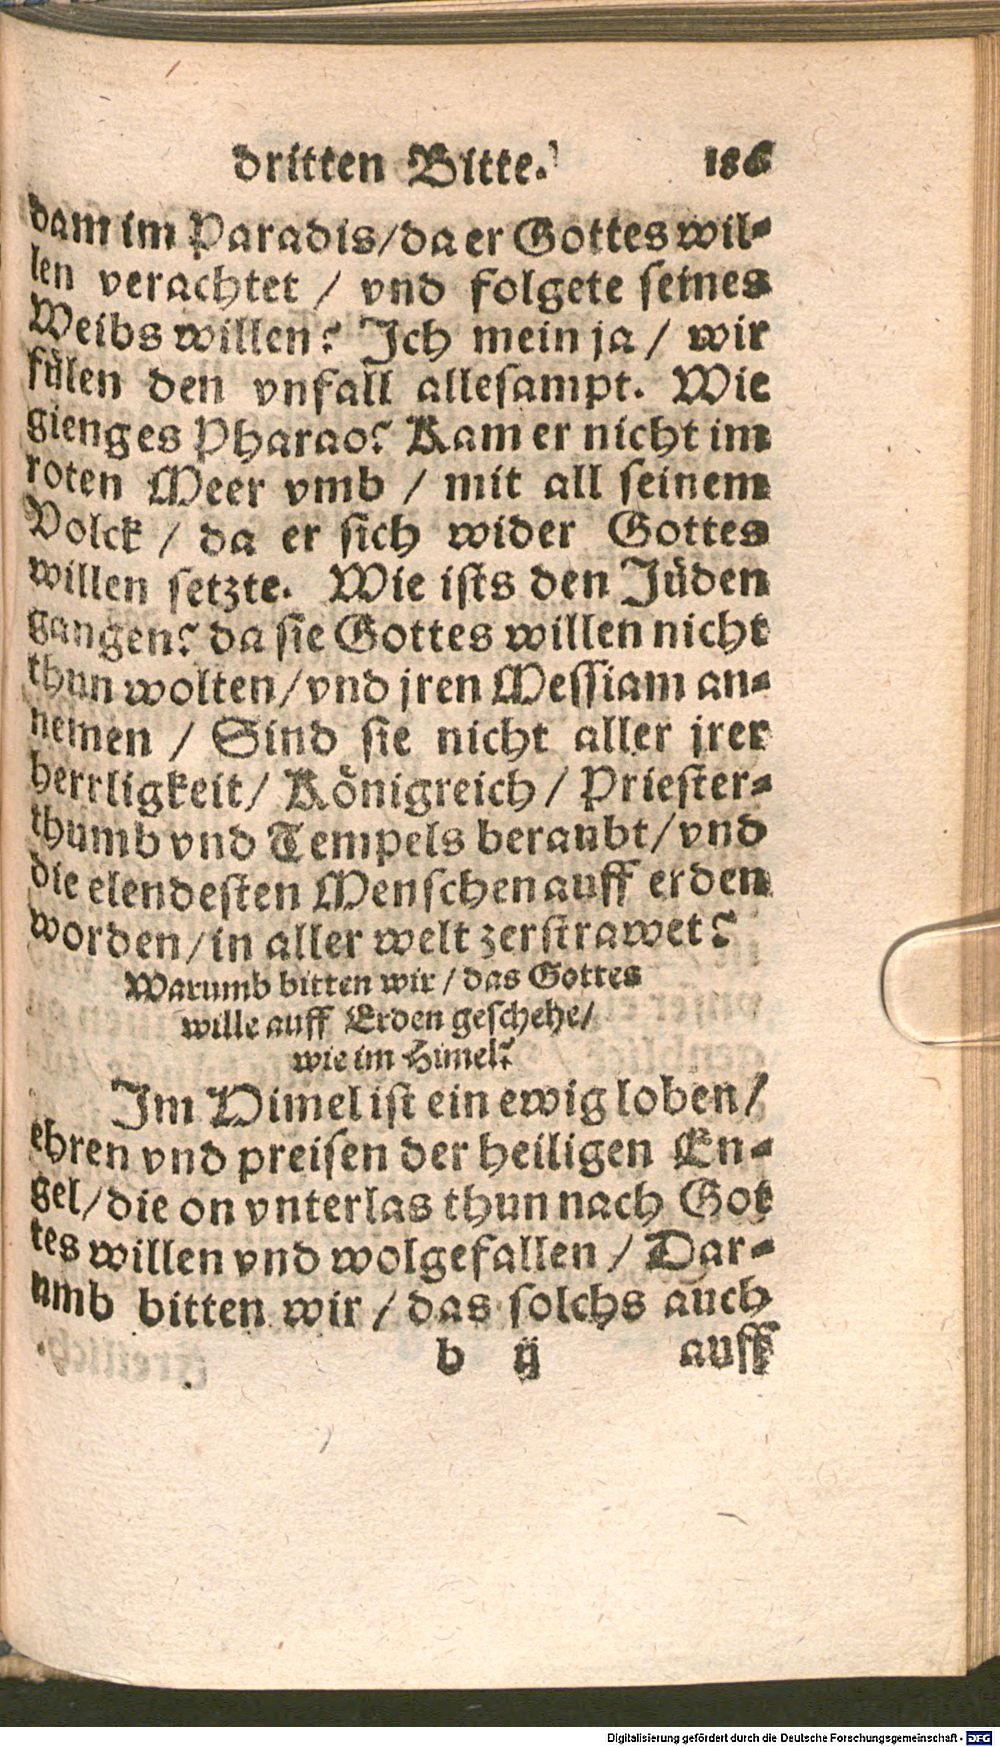 dritten Bitte. 186
dam im Paradis/da er Gottes wil-
len verachtet / vnd folgete seines
Weibs willen? Ich mein ja / wir
fülen den vnfall allesampt. Wie
gieng es Pharao? Kam er nicht im
roten Meer vmb / mit all seinem
Volck / da er sich wider Gottes
willen setzte. Wie ists den Jüden
gangen? da sie Gottes willen nicht
thun wolten/vnd jren Messiam an-
nemen / Sind sie nicht aller jrer
herrligkeit/ Königreich / Priester-
thumb vnd Tempels beraubt/vnd
die elendesten Menschen auff erden
worden/in aller welt zerstrawet?
Warumb bitten wir / das Gottes
wille auff Erden geschehe/
wie im Himel?
Im Himel ist ein ewig loben/
ehren vnd preisen der heiligen En-
gel/die on vnterlas thun nach Got
tes willen vnd wolgefallen / Dar-
umb bitten wir / das solchs auch
b ij auff
Digitalisierung gefördert durch die Deutsche Forschungsgemeinschaft - DFG